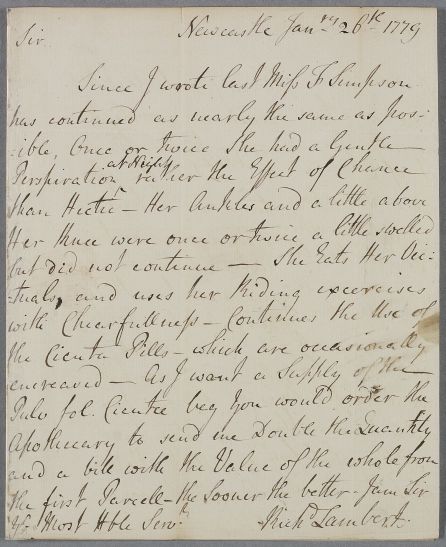 Newcastle Jan:ry 26th 1779
Sir
Since I wrote last Miss F Simpson
has continued as nearly the same as pos-
-ible, Once or twice She had a Gentle
Perspiration at Night rather the Effect of Chance
than Hectic – Her Ankles and a little above
Her knee were once or twice a little swelled
but did not continue – She Eats Her Vic-
-tuals, and uses her Riding excercises
with Chearfullness – Continues the Use of
the Cicuta Pills – which are occasionally
encreased – As I want a Supply of the
Pulv fol. Cicutæ beg You would order the
Apothecary to send me Double the Quantity
and a bill with the Value of the whole from
the first Parcell – the Sooner the better – I am Sir
Yr Most Hble Servt
Richd Lambert.